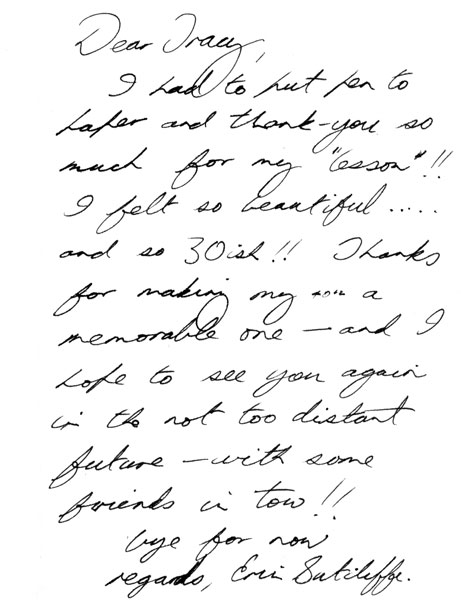 Dear Tracy,
I had to put pen to
paper and thank-you so
much for my "lesson"!!
I felt so beautiful.....
and so 30ish!! Thanks
for making my 40th a
memorable one - and I
hope to see you again
in the not too distant
future - with some
friends in tow!!
bye for now
regards, Erin Sutcliffe.